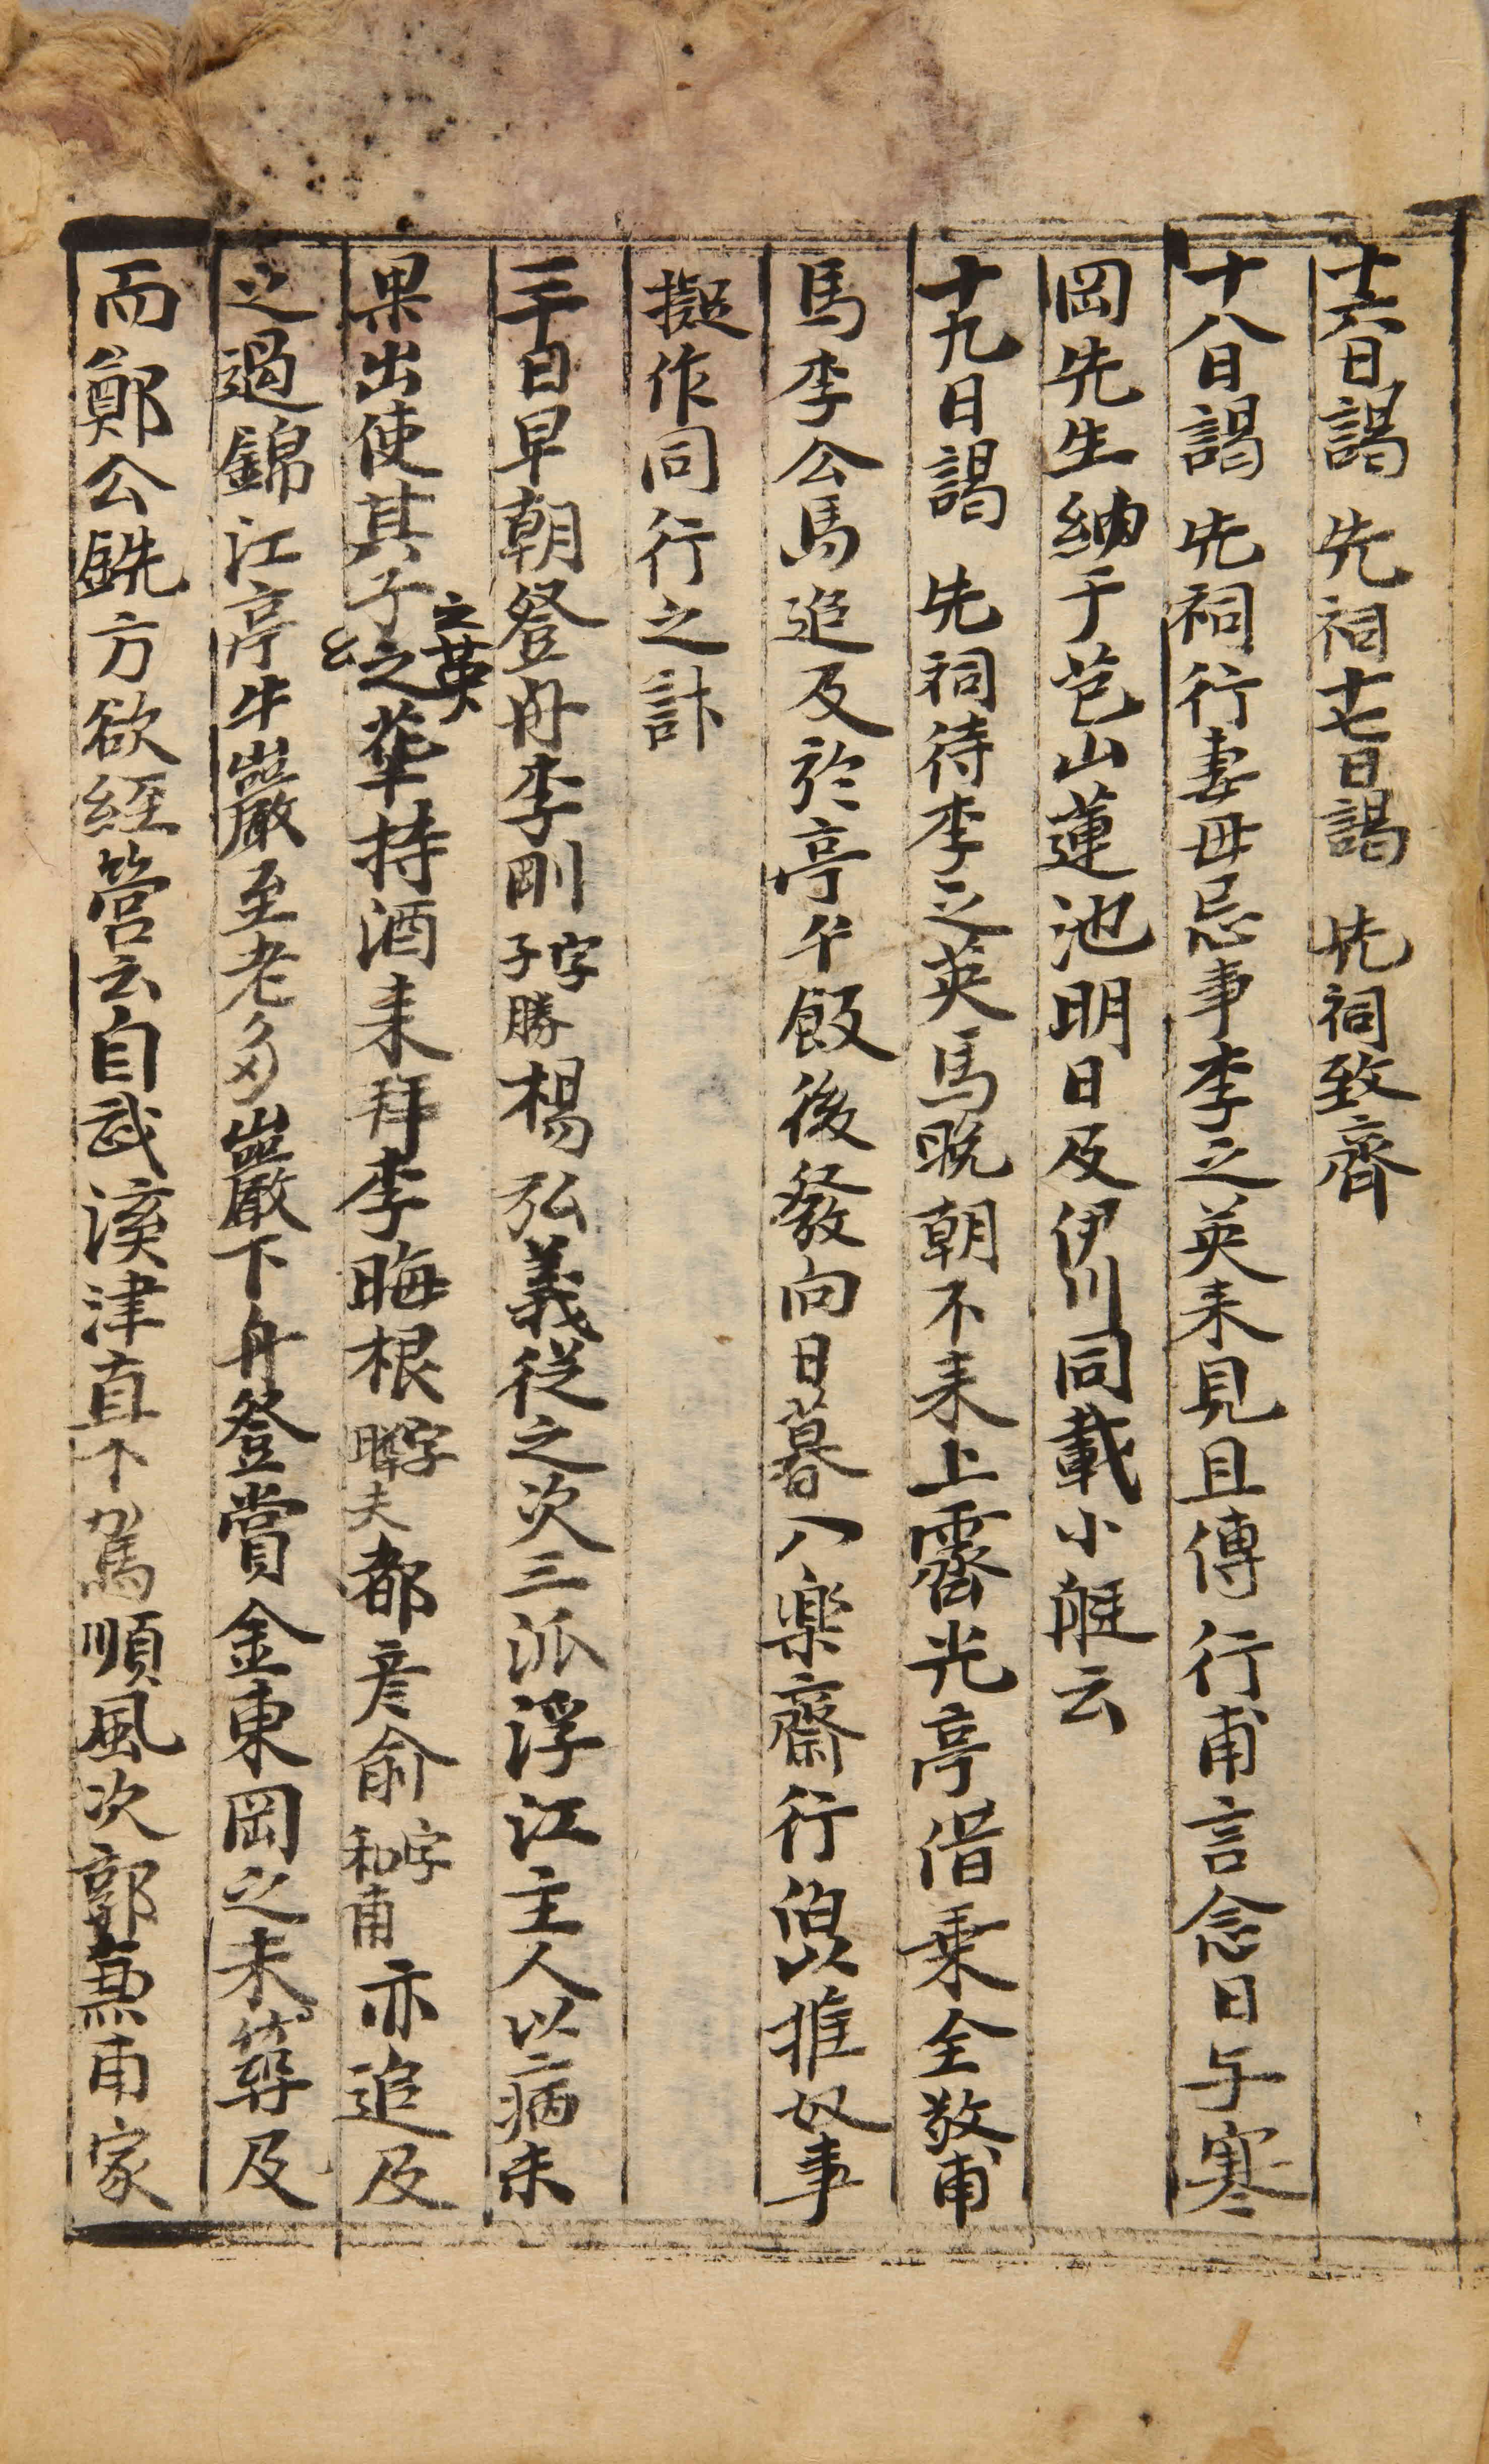 十六日謁 先祠十七日謁 先祠致齊
十八日謁 先祠行妻母忌事李之英来見且傳行甫言念日与寒
岡先生納于芚山蓮池明日及伊川同載小艇云
十九日謁 先祠待李之英馬晩朝不来上霽光亭借乗全敬甫
馬李公馬追及於亭午飯後發向日暮八樂齋行伯以推奴事
擬作同行之計
二十日早朝登舟李剛字子勝楊弘義從之次三派浮江主人以病未
果出使其子之華之英持酒来拜李晦根字晦夫都彦俞字和甫亦追及
之過錦江亭牛巖至老多巖下舟登賞金東岡之未葬及
而鄭公銑方欲経營云自武溪津直下駕順風次郭燕甫家